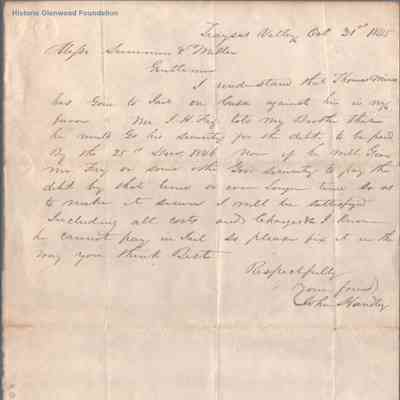 Historic Glenwood Foundation
Valley Oct 21st 1845
Messr Summers & Miller
Gentlemen
I understand that Thomas
has Gone to Jail on Case against him in my
favor Mr. J. H. Fry tells my Brother that
he will Go his security for the debt to be paid
By the 25th 1846 Now if he will Give
Mr Fry or some other Good security to pay the
debt by that time or even Longer time so as
to make it secure I will be satisfied
Including all costs and Charges I know
he cannot pay in Jail so please fix it in the
way you think Best
Respectfully
Your friend
John Handley